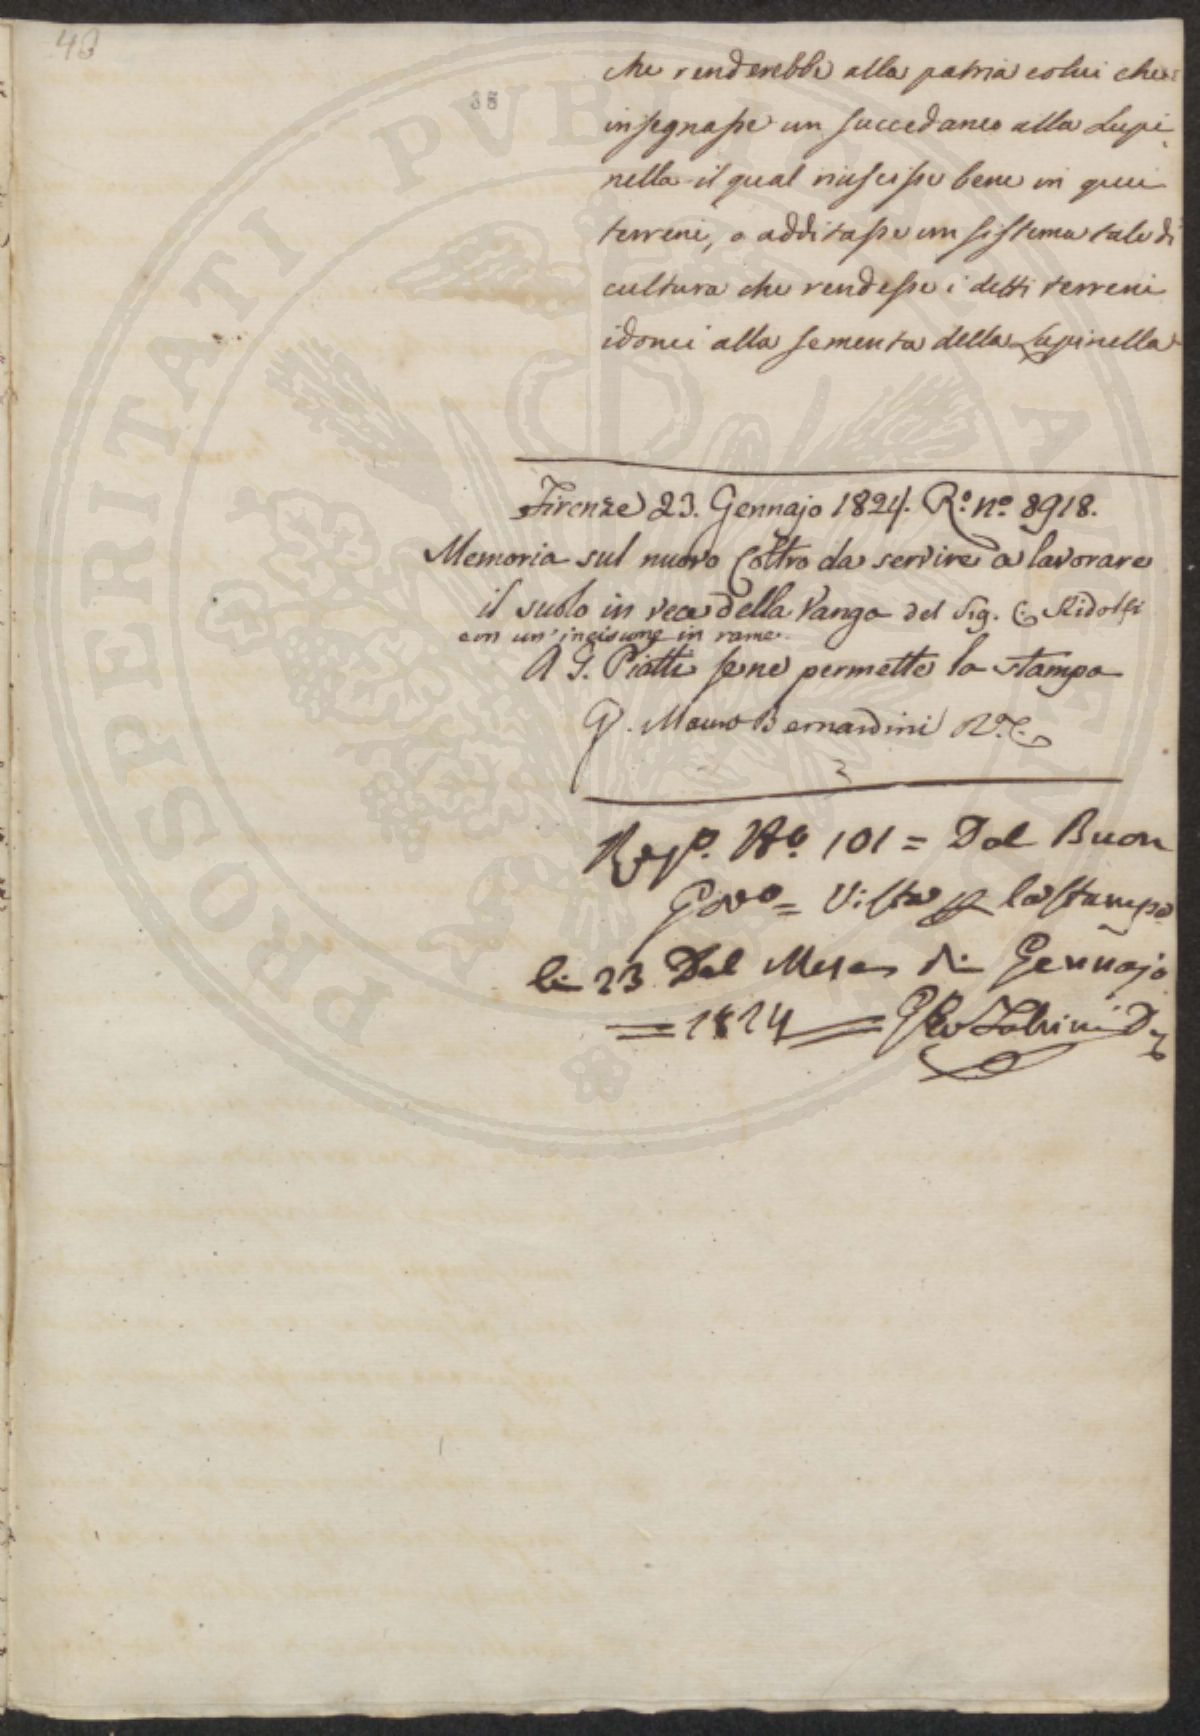 48
38
che renderebbe alla patria colui che
insegnasse un succedaneo alla Lupi-
nella il qual riuscisse bene in quei
terreni, o additasse un sistema tale di
cultura che rendesse i detti terreni
idonei alla sementa della Lupinella
Firenze 23. Gennajo 1824. R.o n.o 8918.
Memoria sul nuovo Coltro da servire a lavorare
il suolo in vece della Vanga del Sig. C. Ridolfi
con un' incisione in rame.
A G. Piatti se ne permette la stampa
P. Mauro Bernardini R.C.
Reg.o N.o 101 = Dal Buon
Gov.o = Vista p la stampa
li 23 Del Mese di Gennajo
= 1824 =
PROSPERITATI PVBLICAE AVGENDAE